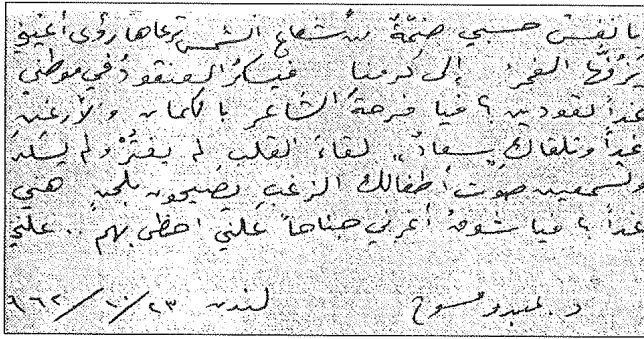 يا نفس حسبي ضمّةٌ من شعاع الشمس ترعاها رؤى أعيني
يزفّها الفجرُ إلى كرمنا فيسكرُ العنقودُ في موطني
غداً تعودين ؟ فيا فرحة الشاعر بالكمان والأرغن
غداً وتلقاكِ "سعادُ" لقاءَ القلب لم يفترْ ولم يسكنْ
وتسمعين صوت أطفالك الزغب يصيحون بلحنٍ هني
غداً ؟ فيا شوقُ أعرني جناحاً علّني أحظى بهم .. علّني
د. عبدو مسوح لندن ٢٣/١٠/٩٦٢